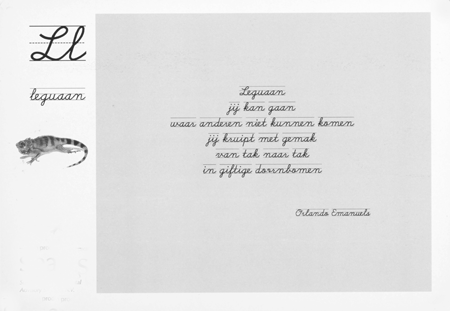 Ll
leguaan
Leguaan
jij kan gaan
waar anderen niet kunnen komen
jij kruipt met gemak
van tak naar tak
in giftige doornbomen
Orlando Emanuels